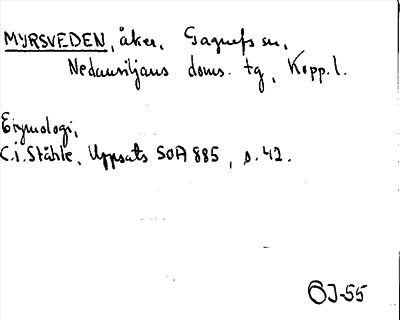 MYRSVEDEN, åker, Gagnefs sn,
Nedansiljans doms. tg, Kopp. l.
Etymologi,
C.i. Ståhle, Uppsats SOA 885, s. 42.
ÖJ-55